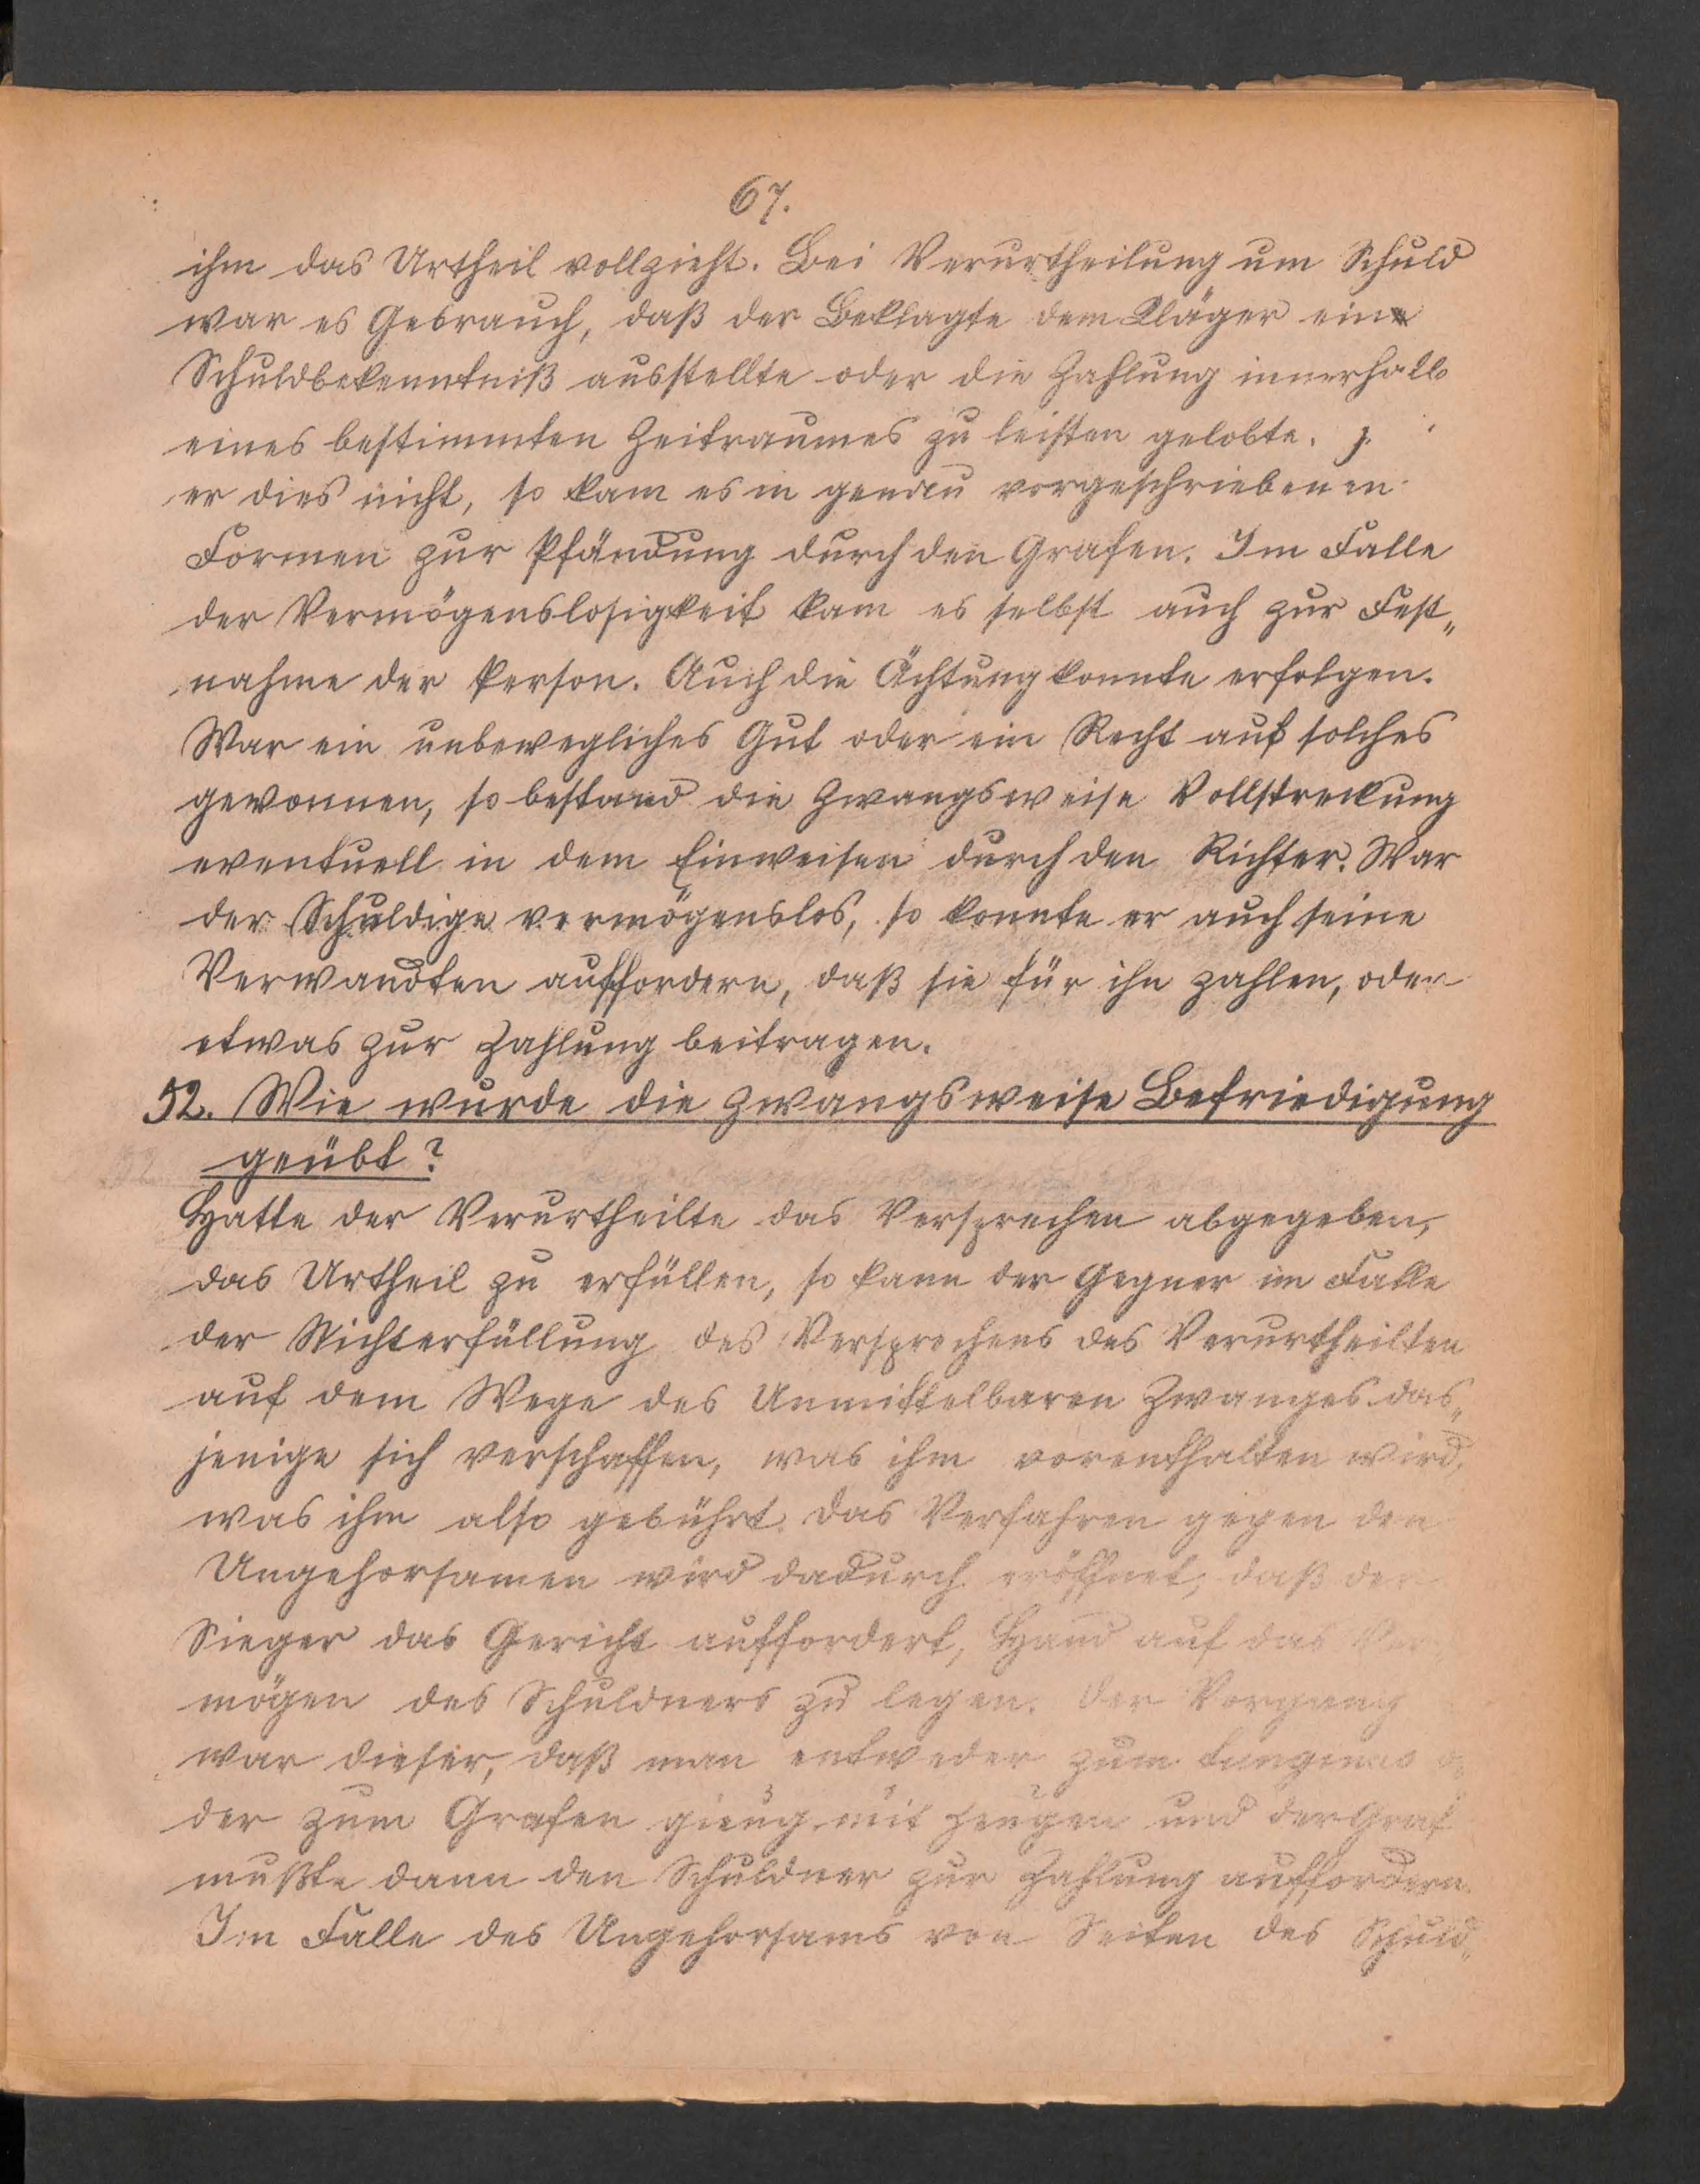 67.
ihm das Urtheil vollzieht. Bei Verurtheilung um Schuld
war es Gebrauch, daß der Beklagte dem Kläger ein
Schuldbekenntniß ausstellte oder die Zahlung innerhalb
eines bestimmten Zeitraumes zu leisten gelobte.
er dies nicht, so kam es in genau vorgeschriebenen
Formen zur Pfändung durch den Grafen. Im Falle
der Vermögenslosigkeit kam es selbst auch zur Fest„
nahme der Person. Auch die Ächtung konnte erfolgen.
War ein unbewegliches Gut oder ein Recht auf solches
gewonnen, so bestand die zwangsweise Vollstreckung
eventuell in dem Einweisen durch den Richter. War
der Schuldige vermögenslos, so konnte er auch seine
Verwandten auffordern, daß sie für ihn zahlen, oder
etwas zur Zahlung beitragen.
52. Wie wurde die zwangsweise Befriedigung
geübt?
Hatte der Verurtheilte das Versprechen abgegeben,
das Urtheil zu erfüllen, so kann der Gegner im Falle
der Nichterfüllung des Versprechens des Verurtheilten
auf dem Wege des Unmittelbaren Zwanges das„
jenige sich verschaffen, was ihm vorenthalten wird,
was ihm also gebührt. Das Verfahren gegen den
Ungehorsamen wird dadurch eröffnet, daß der
Sieger das Gericht auffordert, Hand auf das Ver
mögen des Schuldners zu legen. Der Vorgang
war dieser, daß man entweder zum tunginus o
der zum Grafen gieng mit Zeugen und der Graf
mußte dann den Schuldner zur Zahlung auffordern.
Im Falle des Ungehorsams von Seiten des Schuld„